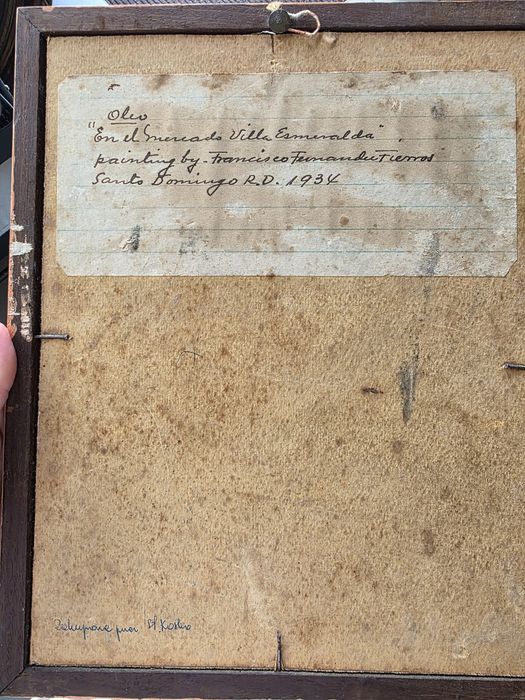 Oleo
"En el Mercado Villa Esmeralda".
painting by - Francisco Fernandez Fierros
Santo Domingo R.D. 1934
Zakupione przez